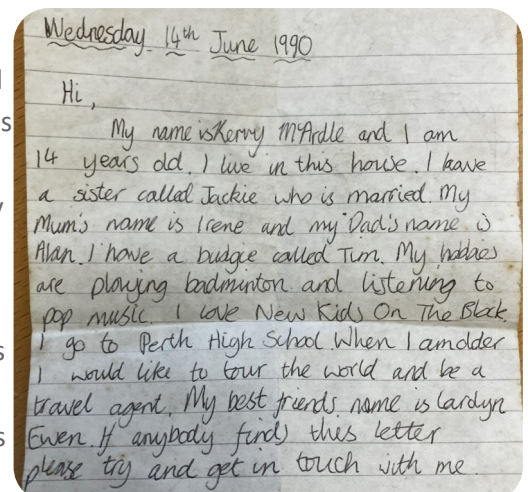 Wednesday 14th June 1990
Hi,
My name is Kerry McArdle and I am
14 years old. I live in this house. I have
a sister called Jackie who is married. My
Mum's name is Irene and my Dad's name is
Alan. I have a budgie called Tim. My hobbies
are playing badminton and listening to
pop music. I love New Kids On The Block.
I go to Perth High School. When I am older
I would like to tour the world and be a
travel agent. My best friends name is
Ewen. If anybody finds this letter
please try and get in touch with me.